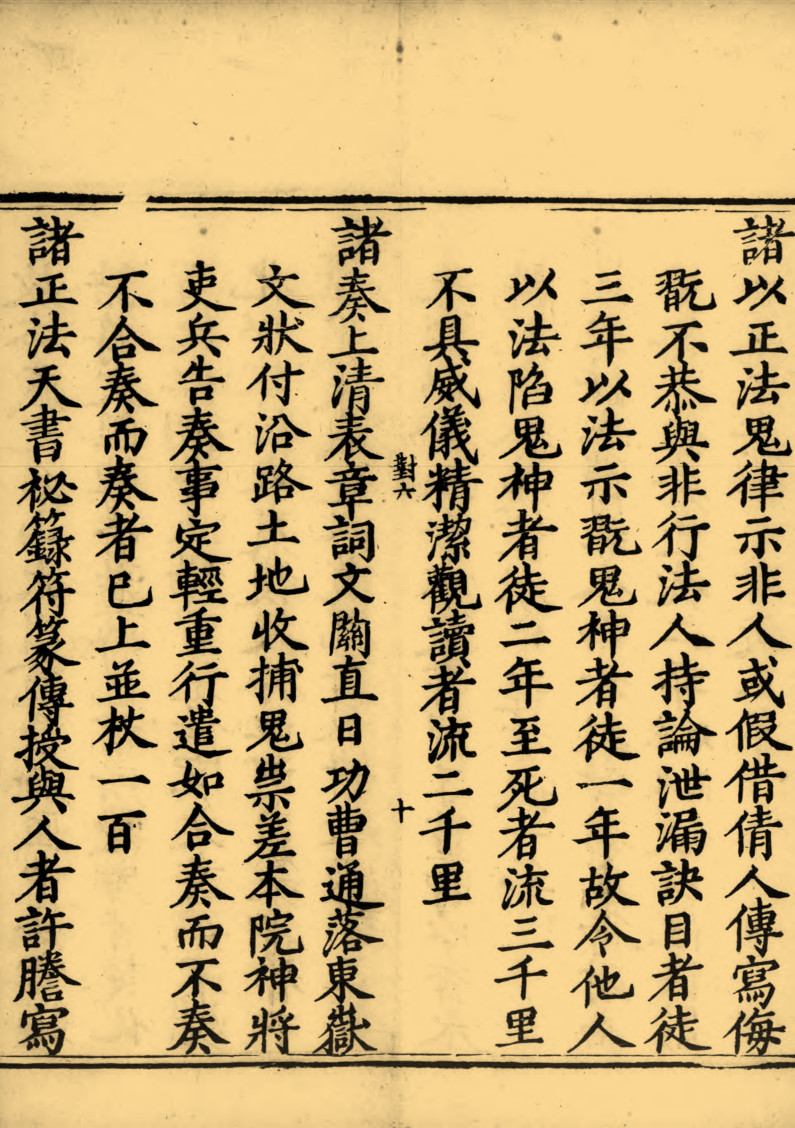 諸以正法鬼律示非人或假借倩人傳寫侮
翫不恭與非行法人持論泄漏訣目者徒
三年以法示翫鬼神者徒一年故令他人
以法陷鬼神者徒二年至死者流三千里
不具威儀精潔觀讀者流二千里
對六
十
諸奏上清表章詞文關直日功曹通落東嶽
文狀付沿路土地收捕鬼祟差本院神將
吏兵告奏事定輕重行遣如合奏而不奏
不合奏而奏者已上並杖一百
諸正法天書祕籙符篆傳授與人者許謄寫